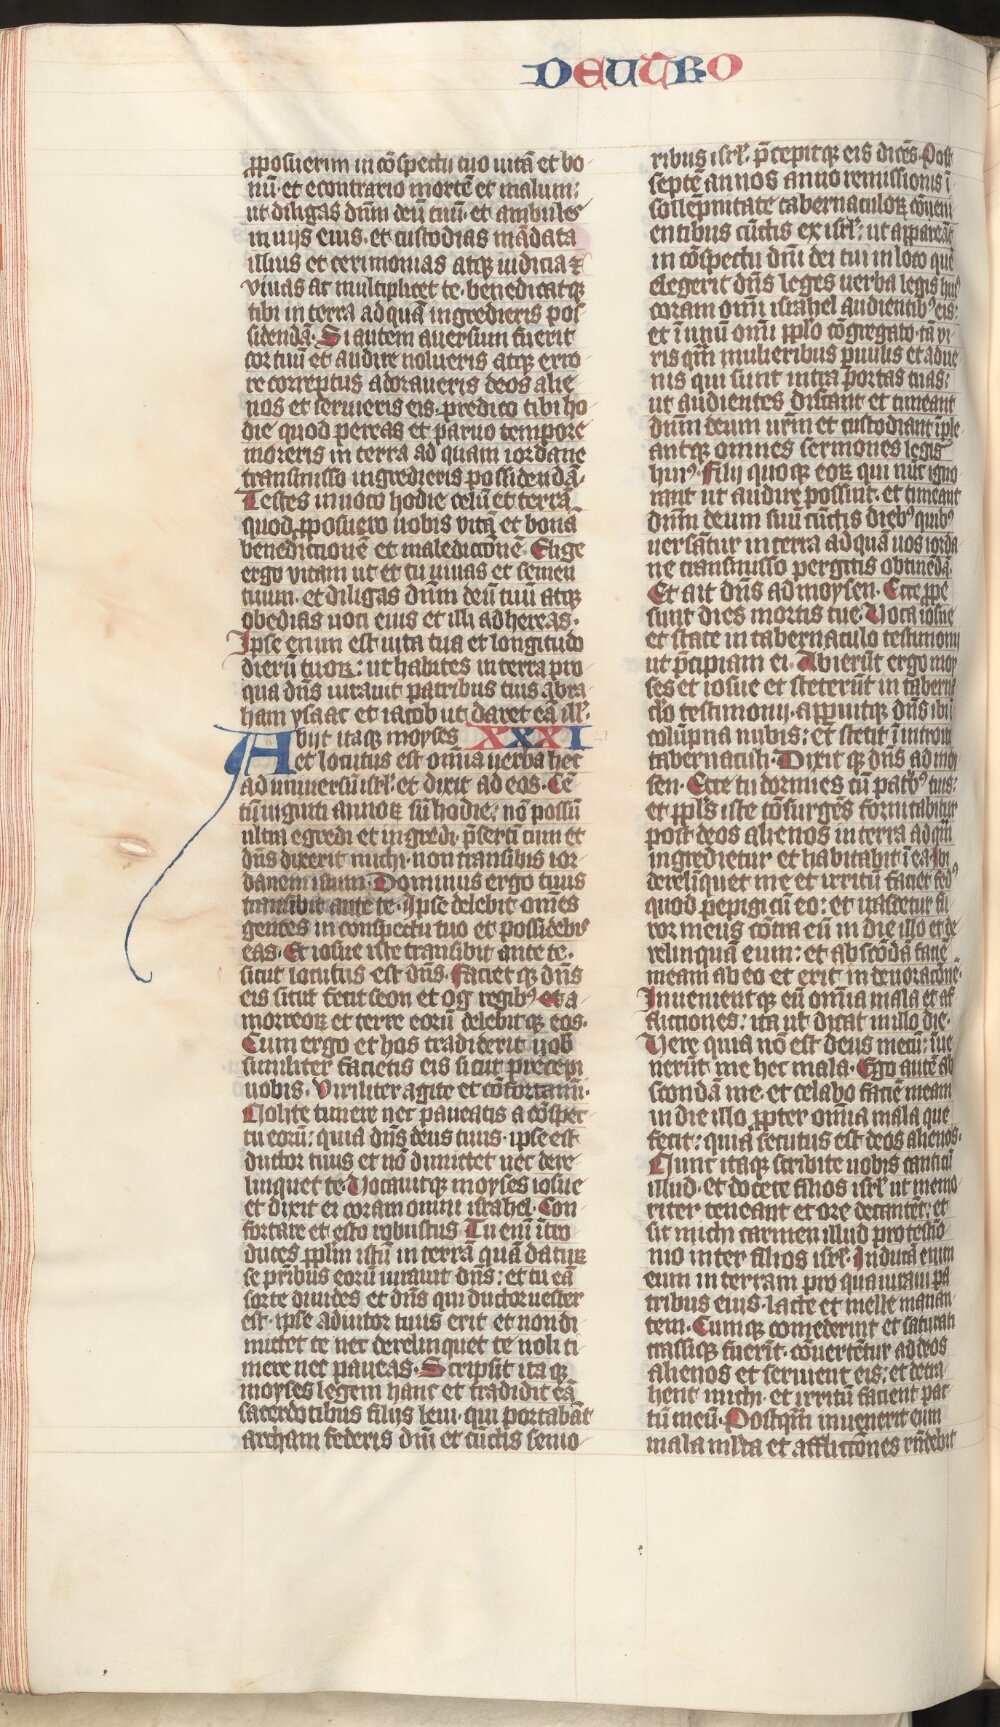 DEUTRO
ꝓposuerim in cōspectu tuo uitā et bo
nū· et econtrario mortē et malum:
ut diligas dn̄m deū tuū· et ambules
in uijs eius· et custodias mādata
illius et cerimonias atqꝫ iudicia ⁊
viuas ac multiplicet te· benedicatqꝫ
tibi in terra ad quā ingredieris pos
sidendā· Si autem auersum fuerit
cor tuū et audire nolueris atqꝫ erro
re correptus adoraueris deos alie
nos et seruieris eis· predico tibi ho
die quod pereas et paruo tempore
moreris in terra ad quam iordane
transmisso ingredieris possidendā·
Testes inuoco hodie celū et terrā
quod ꝓposuero uobis vitā et bonū
benedictionē et maledictōnē· Elige
ergo vitam ut et tu uiuas et semen
tuum· et diligas dn̄m deū tuū atqꝫ
obedias uoci eius et illi adhereas·
Ipse enim est uita tua et longitudo
dierū tuoꝝ: ut habites in terra pro
qua dn̄s iurauit patribus tuis abra
ham ysaac et iacob ut daret eā ill̄·
Abijt itaqꝫ moyses XXXI
et locutus est om̄ia uerba hec
ad uniuersū isrl̄· et dixit ad eos· Cē
tū uiginti annoꝝ sū hodie: nō possū
ultra egredi et ingredi· p̄serti cum et
dn̄s dixerit michi· non transibis ior
danem istum· Dominus ergo tuus
transibit ante te· Ipse delebit om̄es
gentes in conspectu tuo et possidebis
eas· Et iosue iste transibit ante te·
sicut locutus est dn̄s· Faciet qꝫ dn̄s
eis sicut fecit seon et og regibꝰ et a
morreoꝝ et terre eorū delebit qꝫ eos·
Cum ergo et hos tradiderit uob
similiter facietis eis sicut precepi
uobis· Viriliter agite et cōfortami·
Nolite timere nec paueatis a cōspec
tu eorū: quia dn̄s deus tuus· ipse est
ductor tuus et nō dimittet nec dere
linquet te· Uocauitqꝫ moyses iosue
et dixit ei coram omni israhel· Con
fortare et esto robustus· Tu enī ītro
duces ppl̄m istū in terrā quā daturꝫ
se pr̄ibus eorū iurauit dn̄s: et tu eā
sorte diuides et dn̄s qui ductor uester
est· ipse adiutor tuus erit et non di
mittet te nec derelinquet te noli ti
mere nec paueas· Scripsit itaqꝫ
moyses legem hanc et tradidit eā
sacerdotibus filijs leui· qui portabāt
archam federis dn̄i et cūctis senio
ribus isrl̄· p̄cepitqꝫ eis dicēs· Post
septē annos anno remissionis ī
sollepnitate tabernaculoꝝ cōueni
entibus cūctis ex isrl̄: ut appareāt
in cōspectu dn̄i dei tui in loco quē
elegerit dn̄s leges uerba legis huiꝰ
coram om̄i israhel audientibꝰ eis:
et ī unū om̄i ppl̄o cōgregato· tā vi
ris qm̄ mulieribus puulis et adue
nis qui sunt intra portas tuas:
ut audientes discant et timeant
dn̄um deum ur̄m et custodiant īple
antqꝫ omnes sermones legis
huiꝰ· Filij quoqꝫ eoꝝ qui nūc igno
rant ut audire possint· et timeant
dn̄m deum suū cūctis diebꝰ quibꝰ
uersātur in terra ad quā uos iorda
ne transmisso pergitis obtinēdā·
Et ait dn̄s ad moysen· Ecce ꝓpe
sunt dies mortis tue· Uoca iosue
et state in tabernaculo testimonij
ut p̄cipiam ei· Abierūt ergo moy
ses et iosue et steterūt in taberna
clo testimonij· appuitqꝫ dn̄s ibi ī
colūpna nubis: et stetit ī introitu
tabernaculi· Dixit qꝫ dn̄s ad moy
sen· Ecce tu dormies cū patbꝰ tuis:
et ppl̄s iste cōsurgēs fornicabitur
post deos alienos in terra ad qm̄
ingredietur et habitabit ī ea· Ibi
derelīquet me et irritū faciet fedꝰ
quod pepigi cū eo: et irascetur fu
ror meus cōtra eū in die illo et de
relinquā eum: et abscōdā faciē
meam ab eo et erit in deuoracōnē·
Inuenientqꝫ eū om̄ia mala et af
flictiones: ita ut dicat in illo die·
Uere quia nō est deus mecū: īue
nerūt me hec mala· Ego autē ab
scondā me· et celabo faciē meam
in die illo ꝓpter om̄ia mala que
fecit: quia secutus est deos alienos·
Nunc itaqꝫ scribite uobis canticū
illud· et docete filios isrl̄ ut memo
riter teneant et ore decantēt: et
sit michi carmen illud pro testīo
nio inter filios isrl̄· Inducā enim
eum in terram pro qua iuraui pa
tribus eius· lacte et melle manan
tem· Cumqꝫ comederint et saturati
crassiqꝫ fuerīt· cōuertētur ad deos
alienos et seruient eis: et detra
hent michi· et irritū facient pac
tū meū· Postqm̄ inuenerīt eum
mala ml̄ta et afflictiōnes rn̄debit